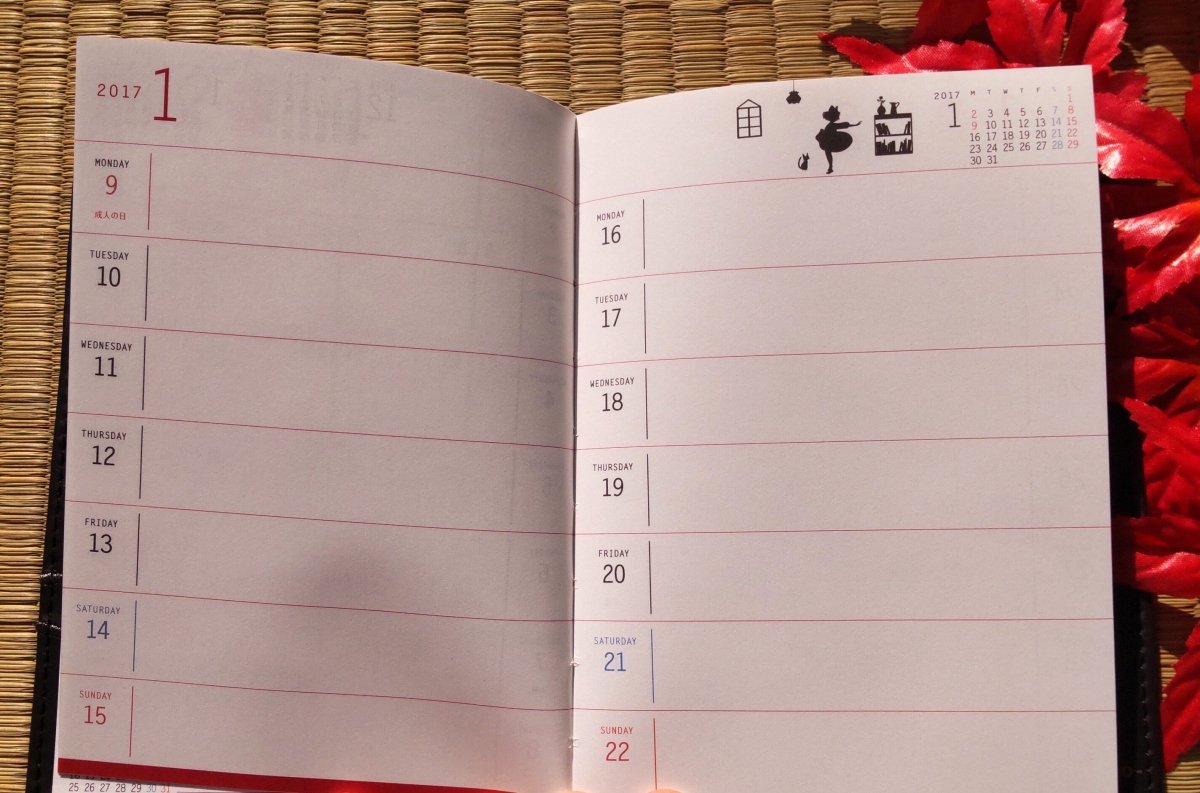 2017 1
MONDAY
9
成人の日
TUESDAY
10
WEDNESDAY
11
THURSDAY
12
FRIDAY
13
SATURDAY
14
SUNDAY
15
25 26 27 28 29 30 31
2017 1
M T W T F S S
1
2 3 4 5 6 7 8
9 10 11 12 13 14 15
16 17 18 19 20 21 22
23 24 25 26 27 28 29
30 31
MONDAY
16
TUESDAY
17
WEDNESDAY
18
THURSDAY
19
FRIDAY
20
SATURDAY
21
SUNDAY
22